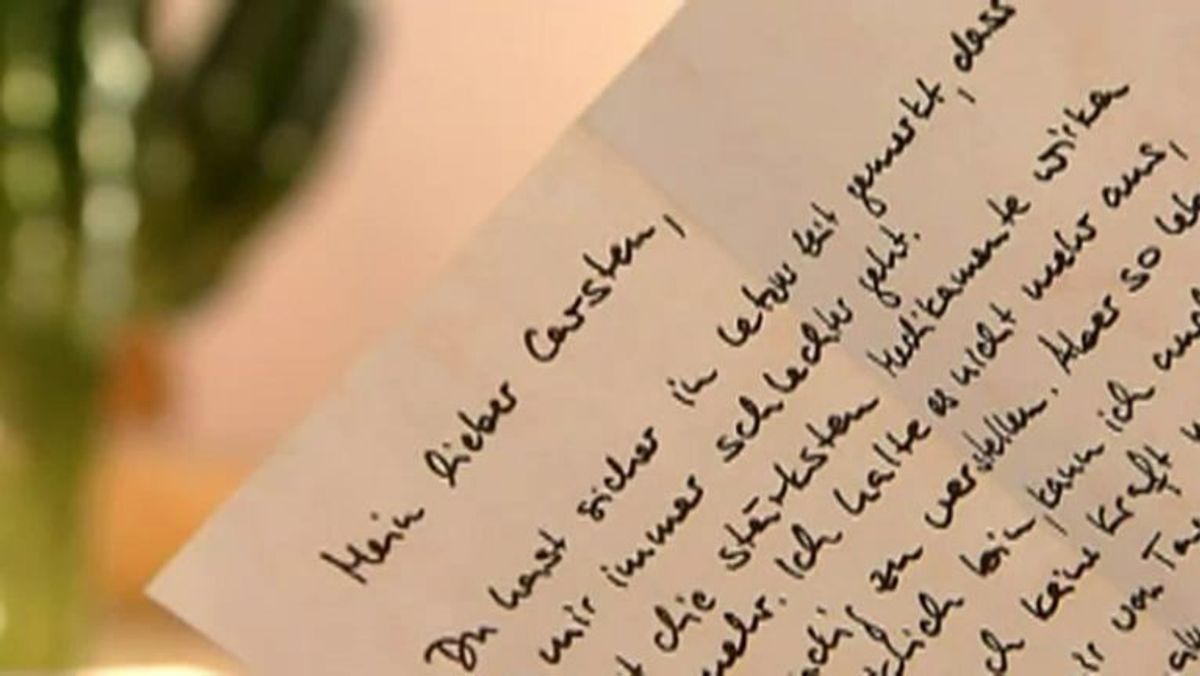 Mein lieber Carsten,
Du hast sicher in letzter Zeit gemerkt, dass
mir immer schlechter geht.
die stärksten Medikamente wirken
mehr. Ich halte es nicht mehr aus,
zu verstellen. Aber so
bin, kann ich
keine Kraft
von